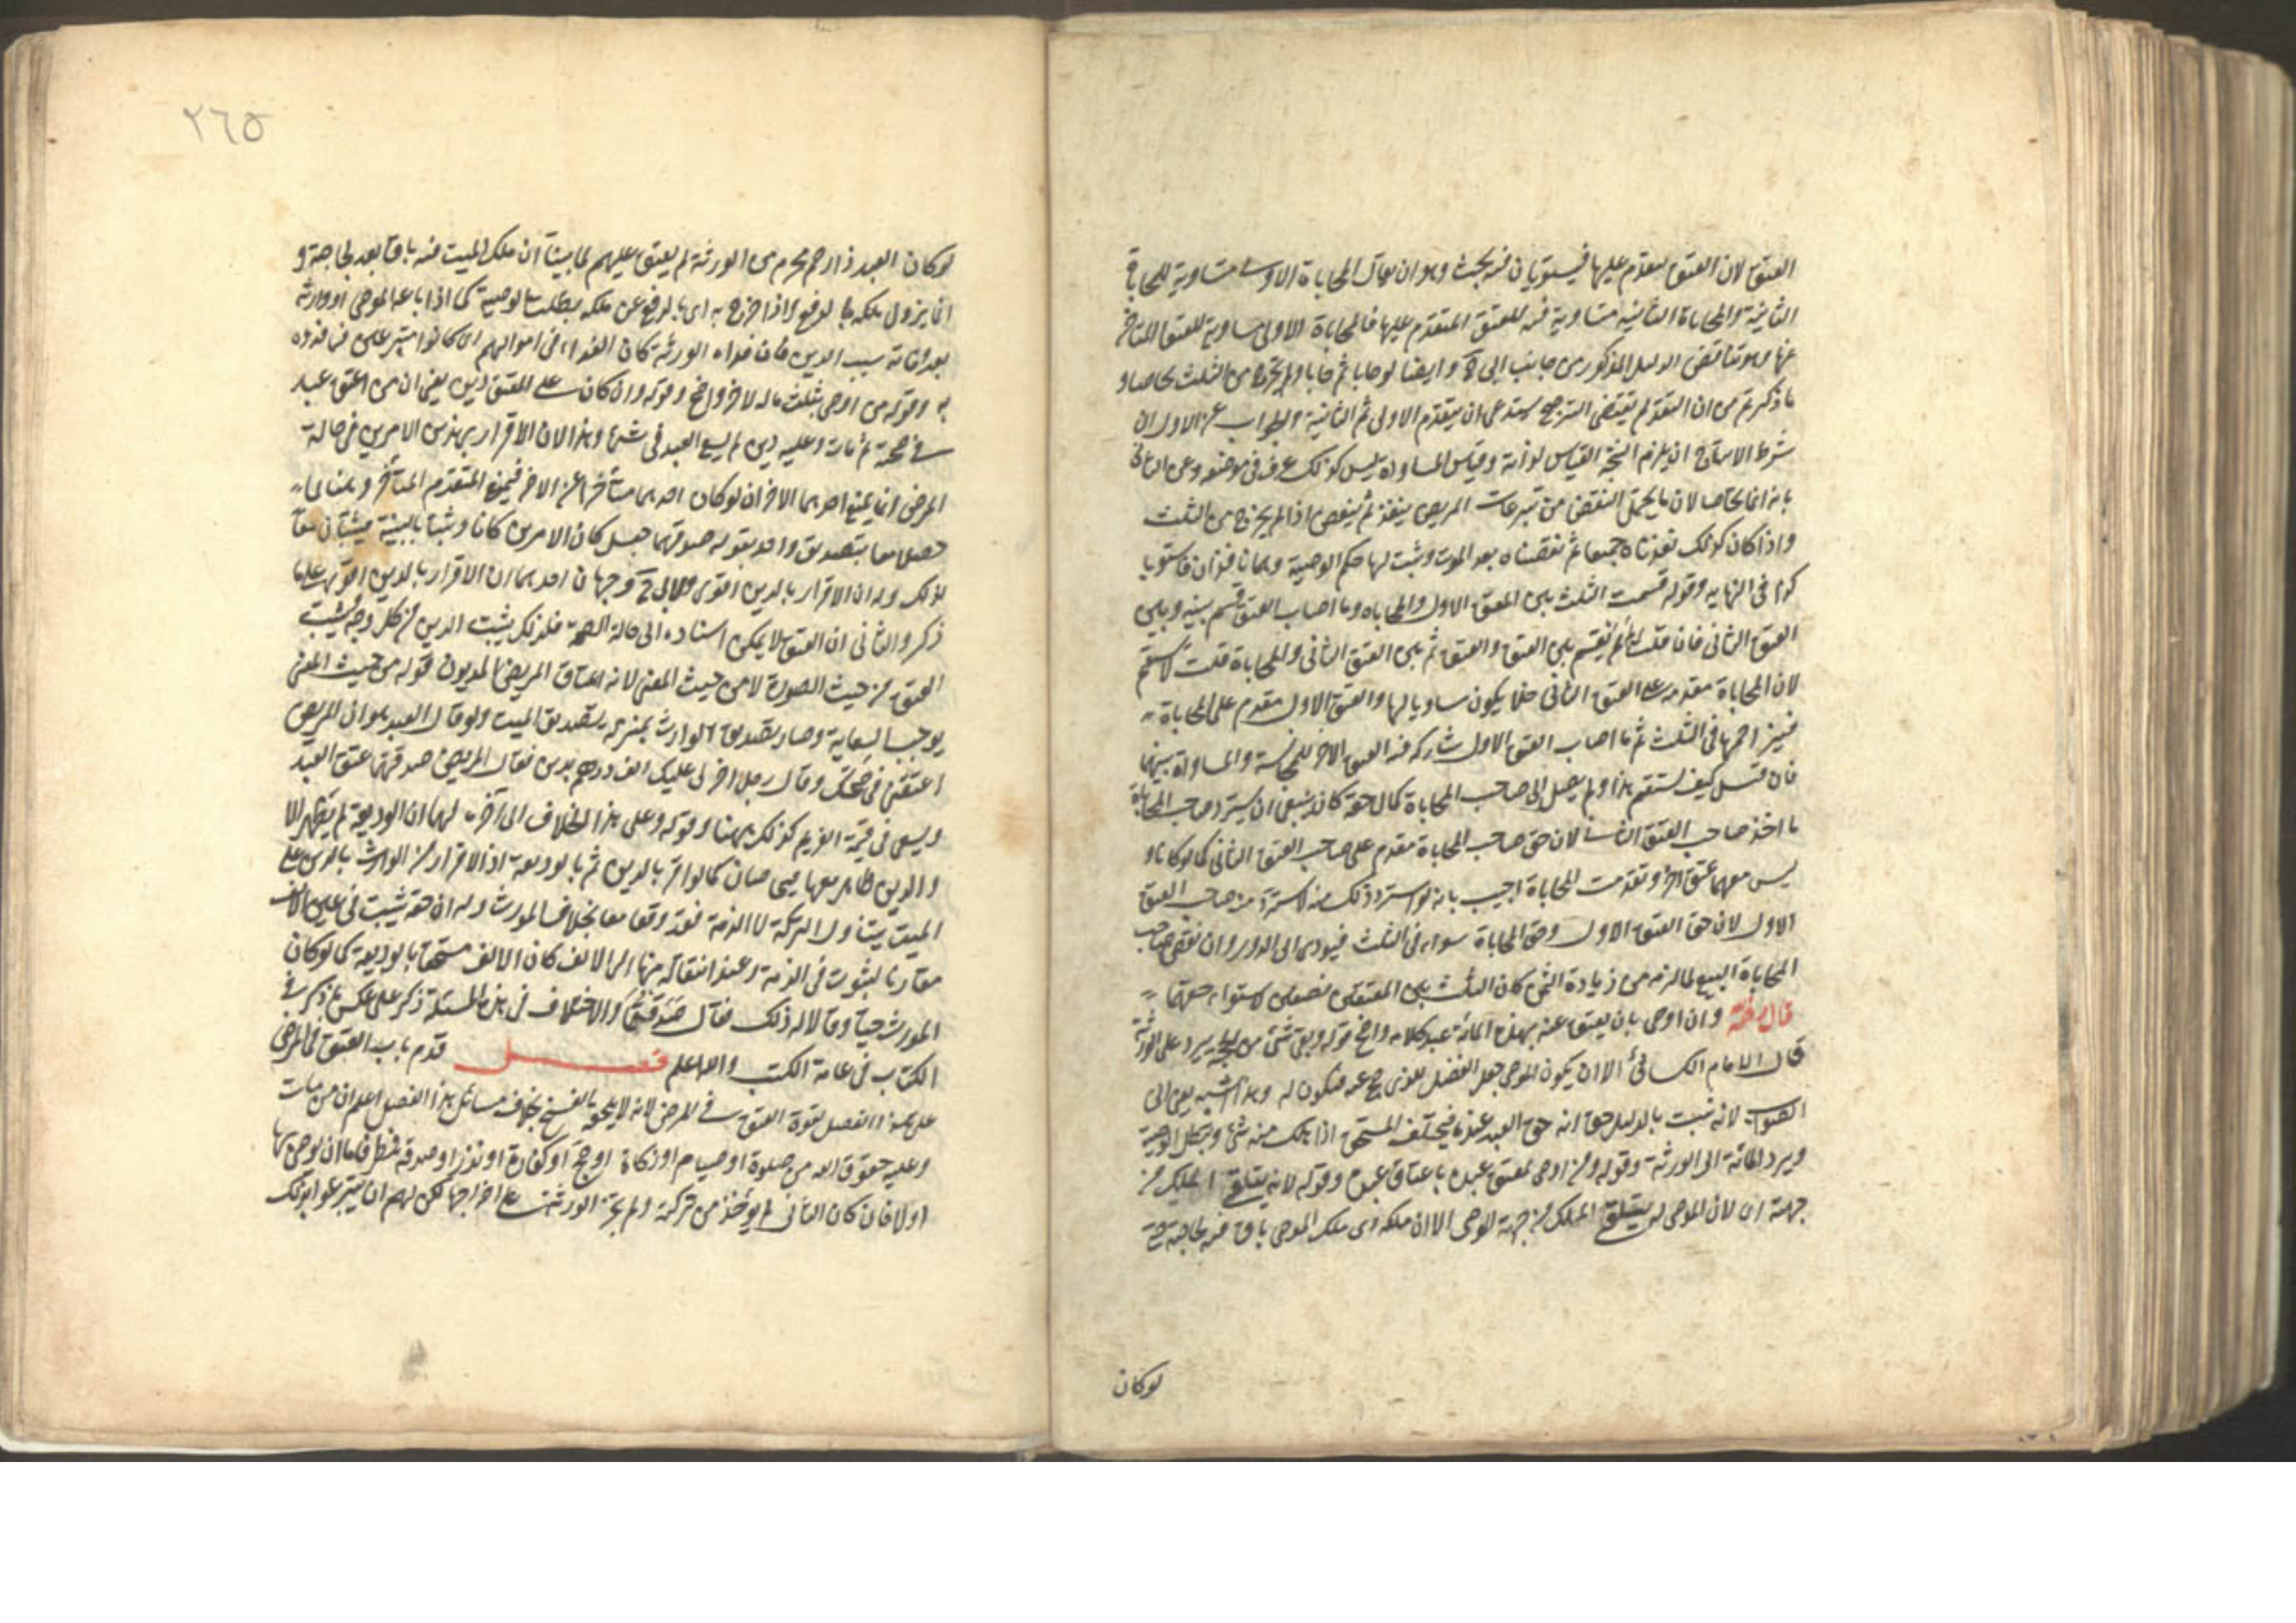 العتق لان العتق متقدم عليها فيستويان فيه بحث وهو ان يقال المحاباة الاولى متساوية للمحاباة
الثانية والمحاباة الثانية متساوية للعتق المتقدم عليها فالمحاباة الاولى مساوية للعتق المتأخر
عنها وهو يناقض الدليل المذكور من جانب ابى ح وايضا لو حابا ثم حابا ولم يخرجا من الثلث تحاصا و
ما ذكرتم من ان التقدم يقتضى الترجيح يستدعى ان يتقدم الاولى ثم الثانية والجواب عن الاول ان
شرط الانتاج ان يلزم النتيجة القياس لذاته وقياس المساواة ليس كذلك عرف فى موضعه وعن الثانى
بانه انما تحاصا لان ما يحتمل النقض من تبرعات المريض ينفذ ثم ينقض اذا لم يخرج من الثلث
واذا كان كذلك نفذناه جميعا ثم نقضناه بعد الموت وثبت لها حكم الوصية وهما نافذان فاستويا
كذا فى النهاية وقوله قسمت الثلث بين العتق الاول والمحاباة وما اصاب العتق قسم بينه وبين
العتق الثانى فان قلت لم لم يقسم بين العتق والعتق ثم بين العتق الثانى والمحاباة قلت لا يستقيم
لان المحاباة مقدمة على العتق الثانى فلا يكون مساويا لها والعتق الاول مقدم على المحاباة
فيزاحمها فى الثلث ثم ما اصاب العتق الاول شاركه فيه العتق الآخر للمجانسة والمساواة بينهما
فان قيل كيف يستقيم هذا ولم يصل الى صاحب المحاباة كمال حقه كان ينبغى ان يسترد صاحب المحاباة
ما اخذ صاحب العتق الثانى لان حق صاحب المحاباة مقدم على صاحب العتق الثانى كما لو كانا و
ليس معهما عتق آخر وتقدمت المحاباة اجيب بانه لو استرد ذلك منه لاسترد منه صاحب العتق
الاول لان حق العتق الاول وحق المحاباة سواء فى الثلث فيؤدى الى الدور وان نقض صاحب
المحاباة البيع لما لزمه من زيادة الثمن كان الثلث بين المعتقين نصفين لاستواء حقهما
قال رحمه وان اوصى بان يعتق عنه بهذه المائة عبد كلامه واضح قوله وبقى شئ من الحجة يرد على الورثة
قال الامام الكسائى الا ان يكون الموصى جعل الفضل للذى يحج عنه فيكون له وهذا اشبه يعنى الى
الصواب لانه ثبت بالدليل حق انه حق العبد عندنا فيختلف المستحق اذا هلك منه شئ وبطل الوصية
ويرد المائة الى الورثة وقوله ومن اوصى بعتق عبده باعتاق عبده وقوله لانه يتلقى الملك من
جهته اى لان الموصى له يتلقى الملك من جهة الموصى الا ان ملكه اى ملك الموصى باق فيه لحاجته حتى
لو كان
٢٦٥
لو كان العبد ذا رحم محرم من الورثة لم يعتق عليهم لما بينا ان ملك الميت فيه باق بعد لحاجته و
انما يزول ملكه بالدفع واذا خرج به اى بالدفع عن ملكه بطلت الوصية كما اذا باعه الموصى او وارثه
بعد وفاته بسبب الدين فان فداه الورثة كان الفداء فى اموالهم ان كانوا متبرعين فيما فدوه
به وقوله من اوصى بثلث ماله لآخر واضح وقوله وان كان على المعتق دين يعنى ان من اعتق عبدا
فى صحته ثم مات وعليه دين لم يسع العبد فى شئ وهذا لان الاقرار بهذين الامرين فى حالة
المرض انما يمنع احدهما الآخر ان لو كان احدهما متأخرا عن الآخر فيمنع المتقدم المتأخر وههنا لما
حصلا معا بتصديق واحد بقوله صدقتهما جعل كان الامرين كانا وثبتا بالبينة فيثبتان معا
لذلك وله ان الاقرار بالدين اقوى ولابى ح وجهان احدهما ان الاقرار بالدين اقوى على ما
ذكر والثانى ان العتق لا يمكن اسناده الى حالة الصحة فلذلك يثبت الدين من كل وجه ويثبت
العتق من حيث الصورة لا من حيث المعنى لانه اعتاق المريض المديون قوله من حيث المعنى
يوجب السعاية وصار تصديق الوارث بمنزلة تصديق الميت ولو قال العبد هو ان المريض
اعتقنى فى صحتك وقال رجل آخر لى عليك الف درهم دين فقال المريض صدقتما عتق العبد
ويسعى فى قيمته الغريم كذلك ههنا وقوله وعلى هذا الخلاف الى آخره لهما ان الوديعة لم تظهر الا
والدين ظاهر معها فيتحاصان كما لو اقر بالدين ثم بالوديعة اذ الاقرار من الوارث بالدين على
الميت يتناول التركة لا الذمة فقد وقعا معا بخلاف المورث وله ان حقه يثبت فى عين الالف
مقارنا لثبوت فى الذمة وعند انتقاله منها الى الالف كان الالف مستحقا بالوديعة كما لو كان
المورث حيا وقالا له ذلك فقال صدقتما والاختلاف فى هذه المسئلة ذكر على عكس ما ذكر فى
الكتاب فى عامة الكتب والله اعلم فصل قدم باب العتق فى المرض
على هذا الفصل لقوة العتق فى المرض لانه لا يلحقه الفسخ بخلاف مسائل هذا الفصل اعلم ان من مات
وعليه حقوق الله من صلوة او صيام او زكاة او حج او كفارة او نذر او صدقة فطر فاما ان يوصى بها
او لا فان كان الثانى لم يؤخذ من تركته ولم يجبر الورثة على اخراجها لكن لهم ان يتبرعوا بذلك